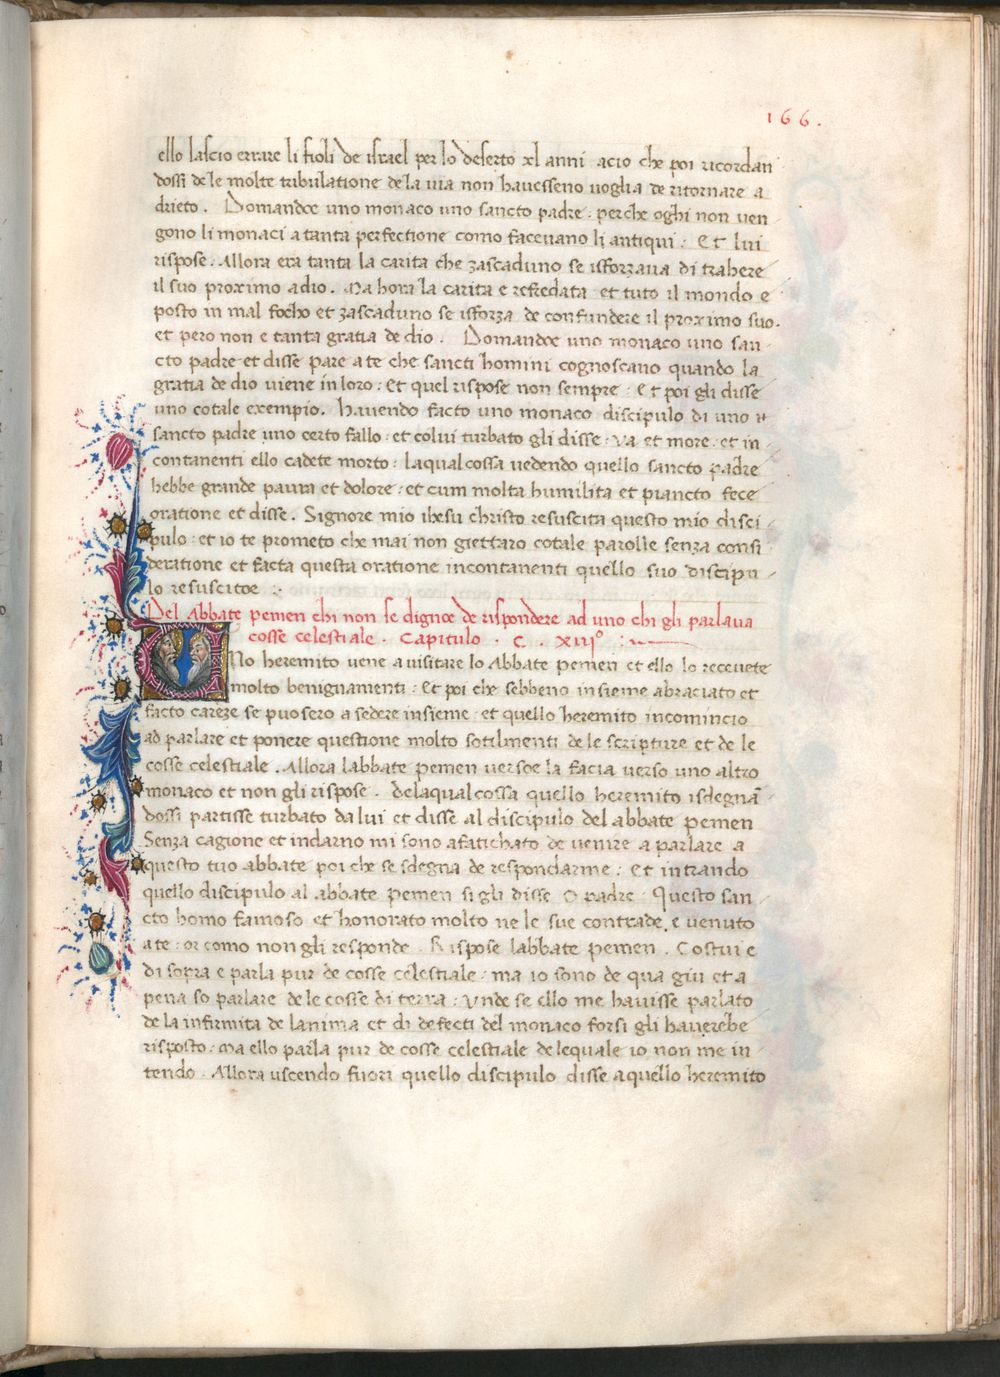 166.
ello lascio errare li fioli de israel per lo deserto xl anni acio che poi ricordan
dossi de le molte tribulatione de la uia non hauesseno uoglia de ritornare a
drieto. Domandoe uno monaco uno sancto padre. perche oghi non uen
gono li monaci a tanta perfectione como faceuano li antiqui: Et lui
rispose. Allora era tanta la carita che zascaduno se isforzaua di trahere
il suo proximo a dio. Ma hora la carita e refredata et tuto il mondo e
posto in mal focho et zascaduno se isforza de confundere il proximo suo.
et pero non e tanta gratia de dio. Domandoe uno monaco uno san-
cto padre et disse pare a te che sancti homini cognoscano quando la
gratia de dio viene in loro: Et quel rispose non sempre: Et poi gli disse
uno cotale exempio. hauendo facto uno monaco discipulo di uno
sancto padre uno certo fallo: et colui turbato gli disse: Va et more. et in
contanenti ello cadete morto: laqual cossa uedendo quello sancto padre
hebbe grande paura et dolore: et cum molta humilita et piancto fece
oratione et disse. Signore mio ihesu christo resuscita questo mio disci
pulo: et io te prometo che mai non giettaro cotale parolle senza consi
deratione et facta questa oratione incontanenti quello suo discipu
lo resuscitoe:
Del Abbate pemen chi non se dignoe de rispondere ad uno chi gli parlaua
cosse celestiale. Capitulo. C. xiiijº
UNo heremito uene a uisitare lo Abbate pemen et ello lo receuete
molto benignamenti: Et poi che sebbeno insieme abraciato et
facto careze se puosero a sedere insieme et quello heremito incomincio
ad parlare et ponere questione molto sotilmenti de le scripture et de le
cosse celestiale. Allora labbate pemen uersoe la facia uerso uno altro
monaco et non gli rispose. delaqual cossa quello heremito isdegnā
dossi partisse turbato da lui et disse al discipulo del abbate pemen
Senza cagione et indarno mi sono afatichato de uenire a parlare a
questo tuo abbate poi che se sdegna de respondarme: Et intrando
quello discipulo al abbate pemen si gli disse O padre: Questo san-
cto homo famoso et honorato molto ne le sue contrade, e uenuto
a te: or como non gli responde. Rispose labbate pemen. Costui e
di sopra e parla pur de cosse celestiale: ma io sono de qua giu et a
pena so parlare de le cosse di terra: Vnde se ello me hauisse parlato
de la infirmita de lanima et di defecti del monaco forsi gli hauerebe
risposto: Ma ello parla pur de cosse celestiale de lequale io non me in
tendo. Allora uscendo fuori quello discipulo disse a quello heremito